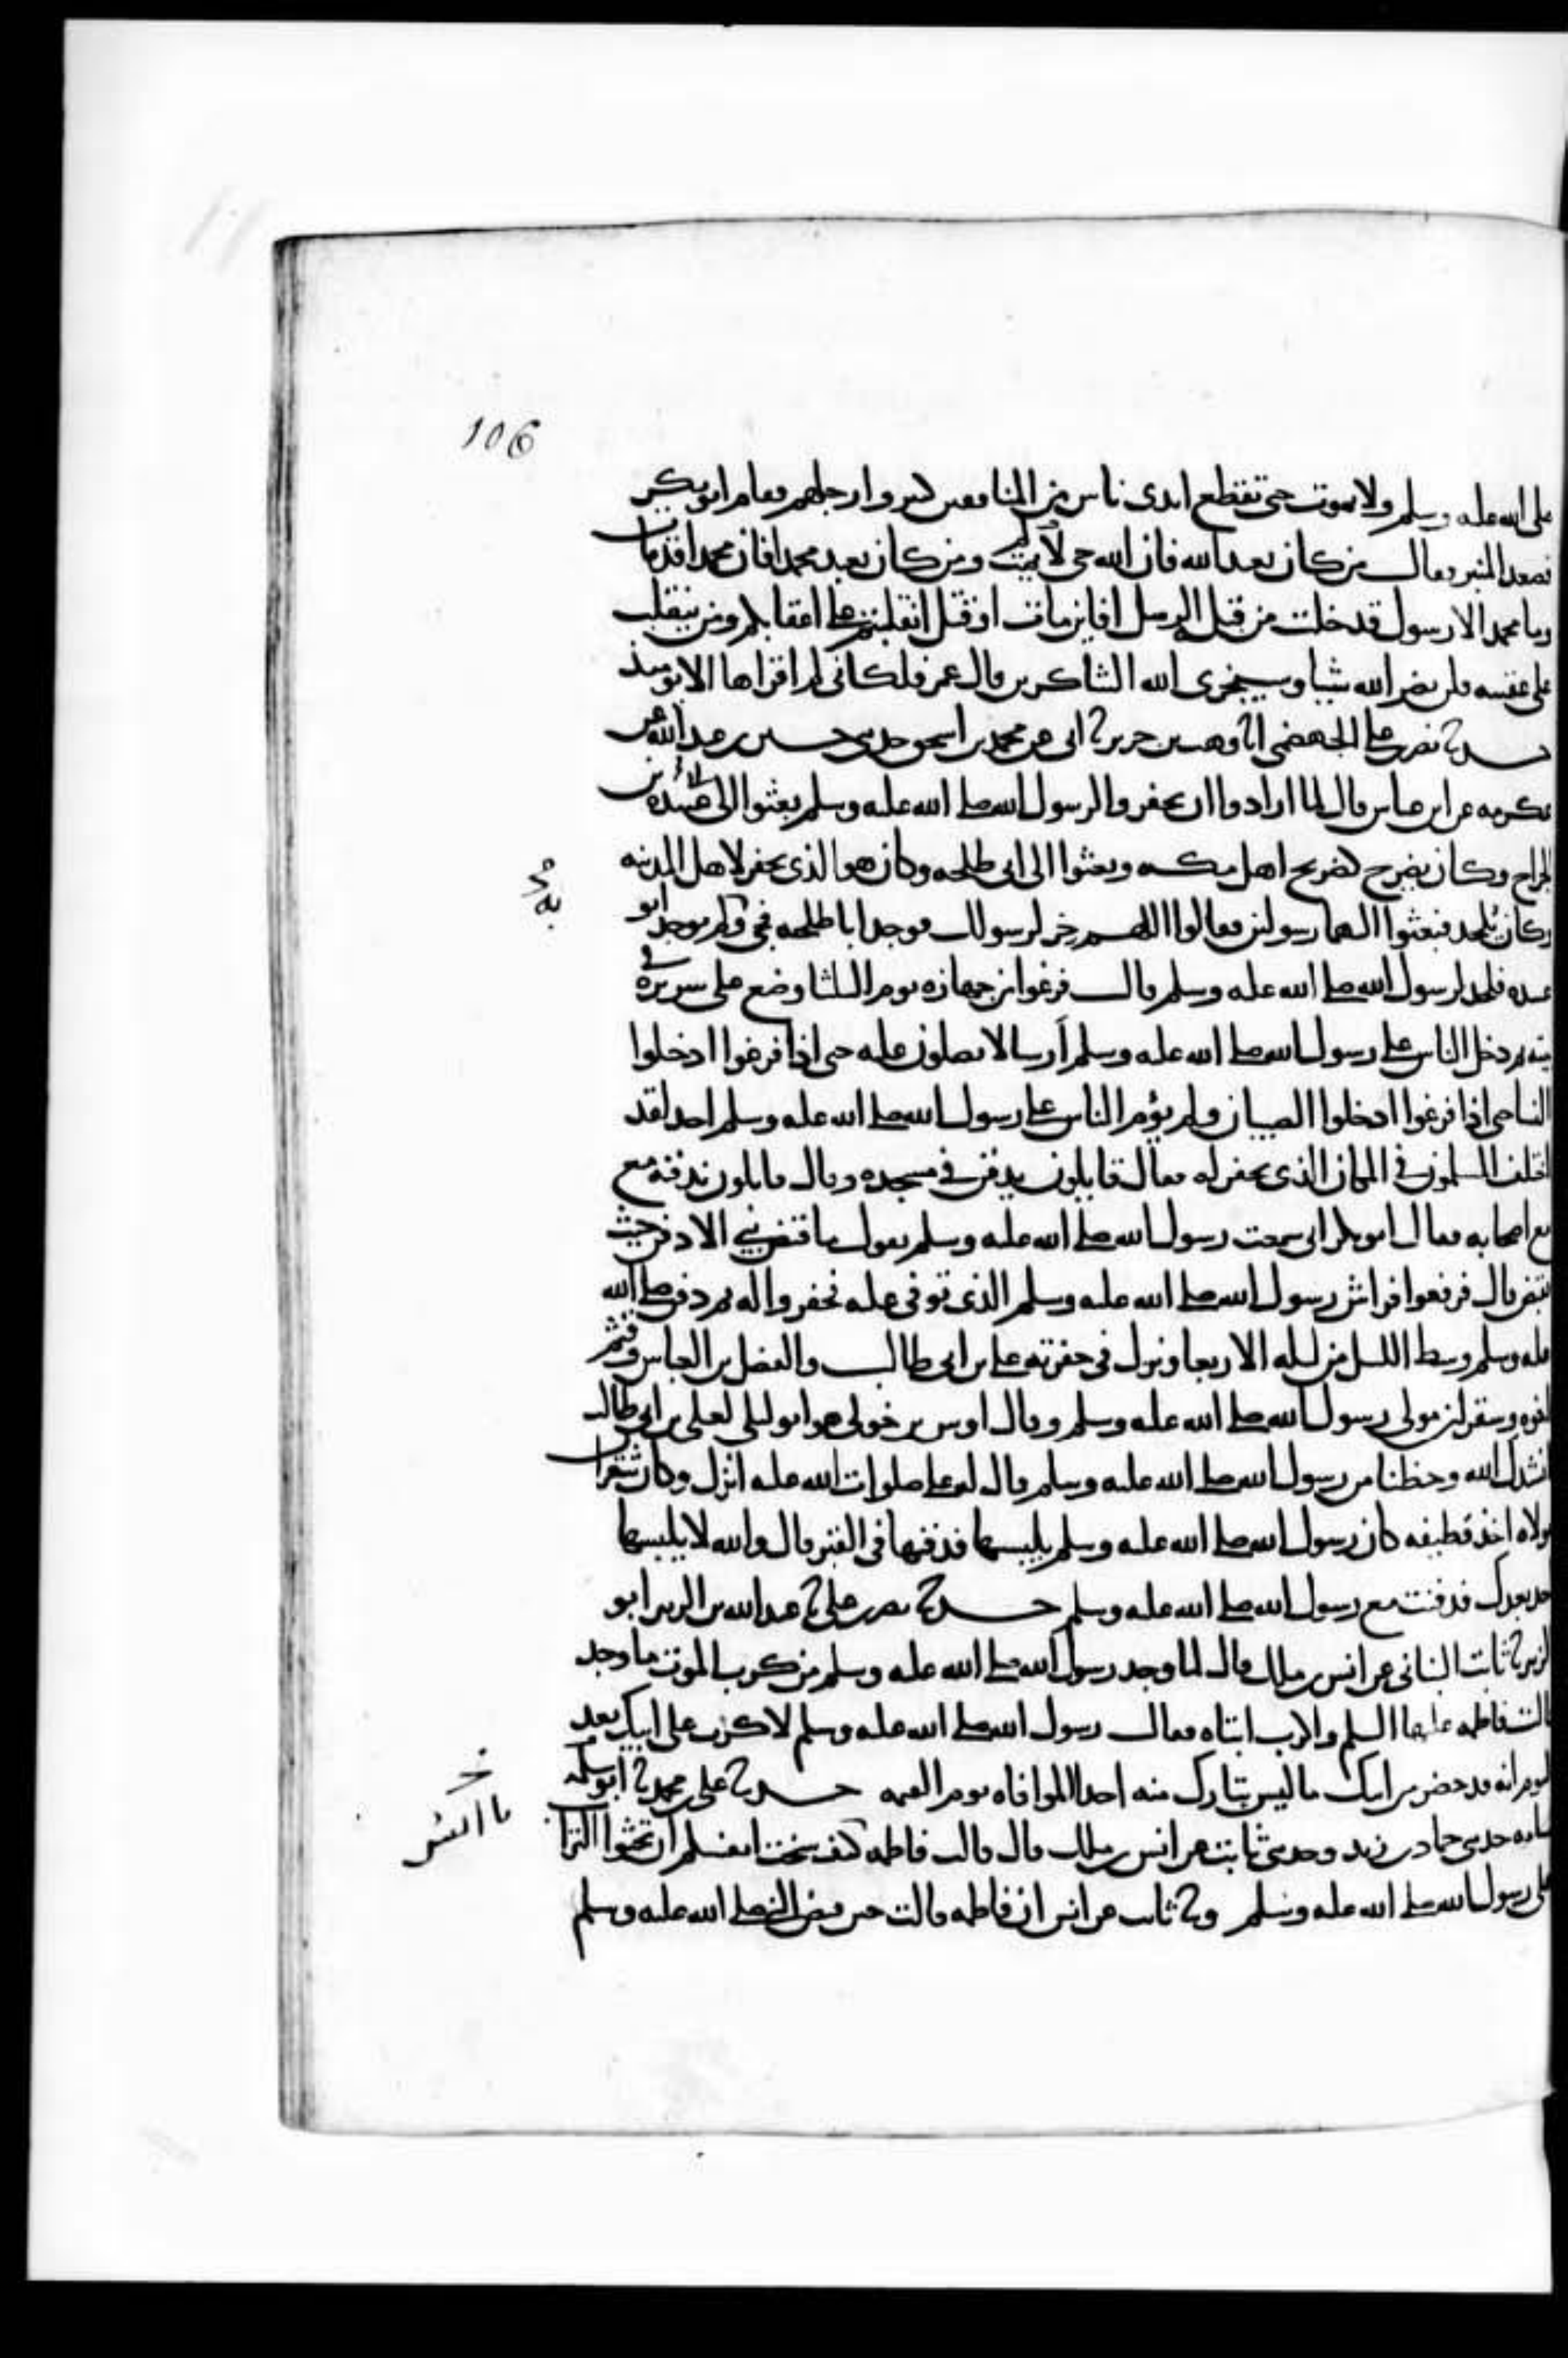 106
صلى الله عليه وسلم ولا يموت حتى تقطع ايدى ناس من المنافقين كثير وارجلهم فقام ابو بكر
فصعد المنبر فقال من كان يعبد الله فان الله حى لم يمت ومن كان يعبد محمدا فان محمدا قد مات
وما محمد الا رسول قد خلت من قبله الرسل افاين مات او قتل انقلبتم على اعقابكم ومن ينقلب
على عقبيه فلن يضر الله شيا وسيجزى الله الشاكرين قال عمر فلكانى لم اقراها الا يوميذ
حدثنا نصر بن على الجهضمى انا وهب بن جرير ثنا ابى عن محمد بن اسحق حدثنى حسين بن عبد الله عن
عكرمه عن ابن عباس قال لما ارادوا ان يحفروا لرسول الله صلى الله عليه وسلم بعثوا الى ابى عبيده بن
الجراح وكان يضرح كضريح اهل مكه وبعثوا الى ابى طلحه وكان هو الذى يحفر لاهل المدينه
وكان يلحد فبعثوا اليهما رسولين فقالوا اللهم خر لرسولك فوجدا باطلحه فجى به ولم يوجد ابو
به
عبيده فلحد لرسول الله صلى الله عليه وسلم قال فلما فرغوا من جهازه يوم الثلثا وضع على سريره فى
بيته ثم دخل الناس على رسول الله صلى الله عليه وسلم ارسالا يصلون عليه حتى اذا فرغوا ادخلوا
النسا حتى اذا فرغوا ادخلوا الصبيان ولم يؤم الناس على رسول الله صلى الله عليه وسلم احد لقد
اختلف المسلمون فى المكان الذى يحفر له فقال قايلون يدفن فى مسجده وقال قايلون ندفنه مع
مع اصحابه فقال ابو بكر انى سمعت رسول الله صلى الله عليه وسلم يقول ما قبض نبى الا دفن حيث
يقبض قال فرفعوا فراش رسول الله صلى الله عليه وسلم الذى توفى عليه فحفروا له ثم دفن صلى الله
عليه وسلم وسط الليل من ليله الاربعا ونزل فى حفرته على بن ابى طالب والفضل بن العباس وقثم
اخوه وشقران مولى رسول الله صلى الله عليه وسلم وقال اوس بن خولى هو ابو ليلى لعلى بن ابى طالب
انشدك الله وحظنا من رسول الله صلى الله عليه وسلم قال له على صلوات الله عليه انزل وكان شقران
مولاه اخذ قطيفه كان رسول الله صلى الله عليه وسلم يلبسها فدفنها فى القبر قال والله لا يلبسها
احد بعدك فدفنت مع رسول الله صلى الله عليه وسلم حدثنا نصر بن على ثنا عبد الله بن الزبير ابو
الزبير ثنا ثابت البنانى عن انس بن ملك قال لما وجد رسول الله صلى الله عليه وسلم من كرب الموت ما وجد
قالت فاطمه عليها السلم واكرب ابتاه فقال رسول الله صلى الله عليه وسلم لا كرب على ابيك بعد
اليوم انه قد حضر من ابيك ما ليس بتارك منه احدا الموافاه يوم القيمه حدثنا على بن محمد ثنا ابو سلمه
اسامه حدثنى حماد بن زيد وحدثنى ثابت عن انس بن ملك قال قالت فاطمه كيف سخت انفسكم ان تحثوا التراب
يا انس
على رسول الله صلى الله عليه وسلم وثنا ثابت عن انس ان فاطمه قالت حين قبض النبى صلى الله عليه وسلم